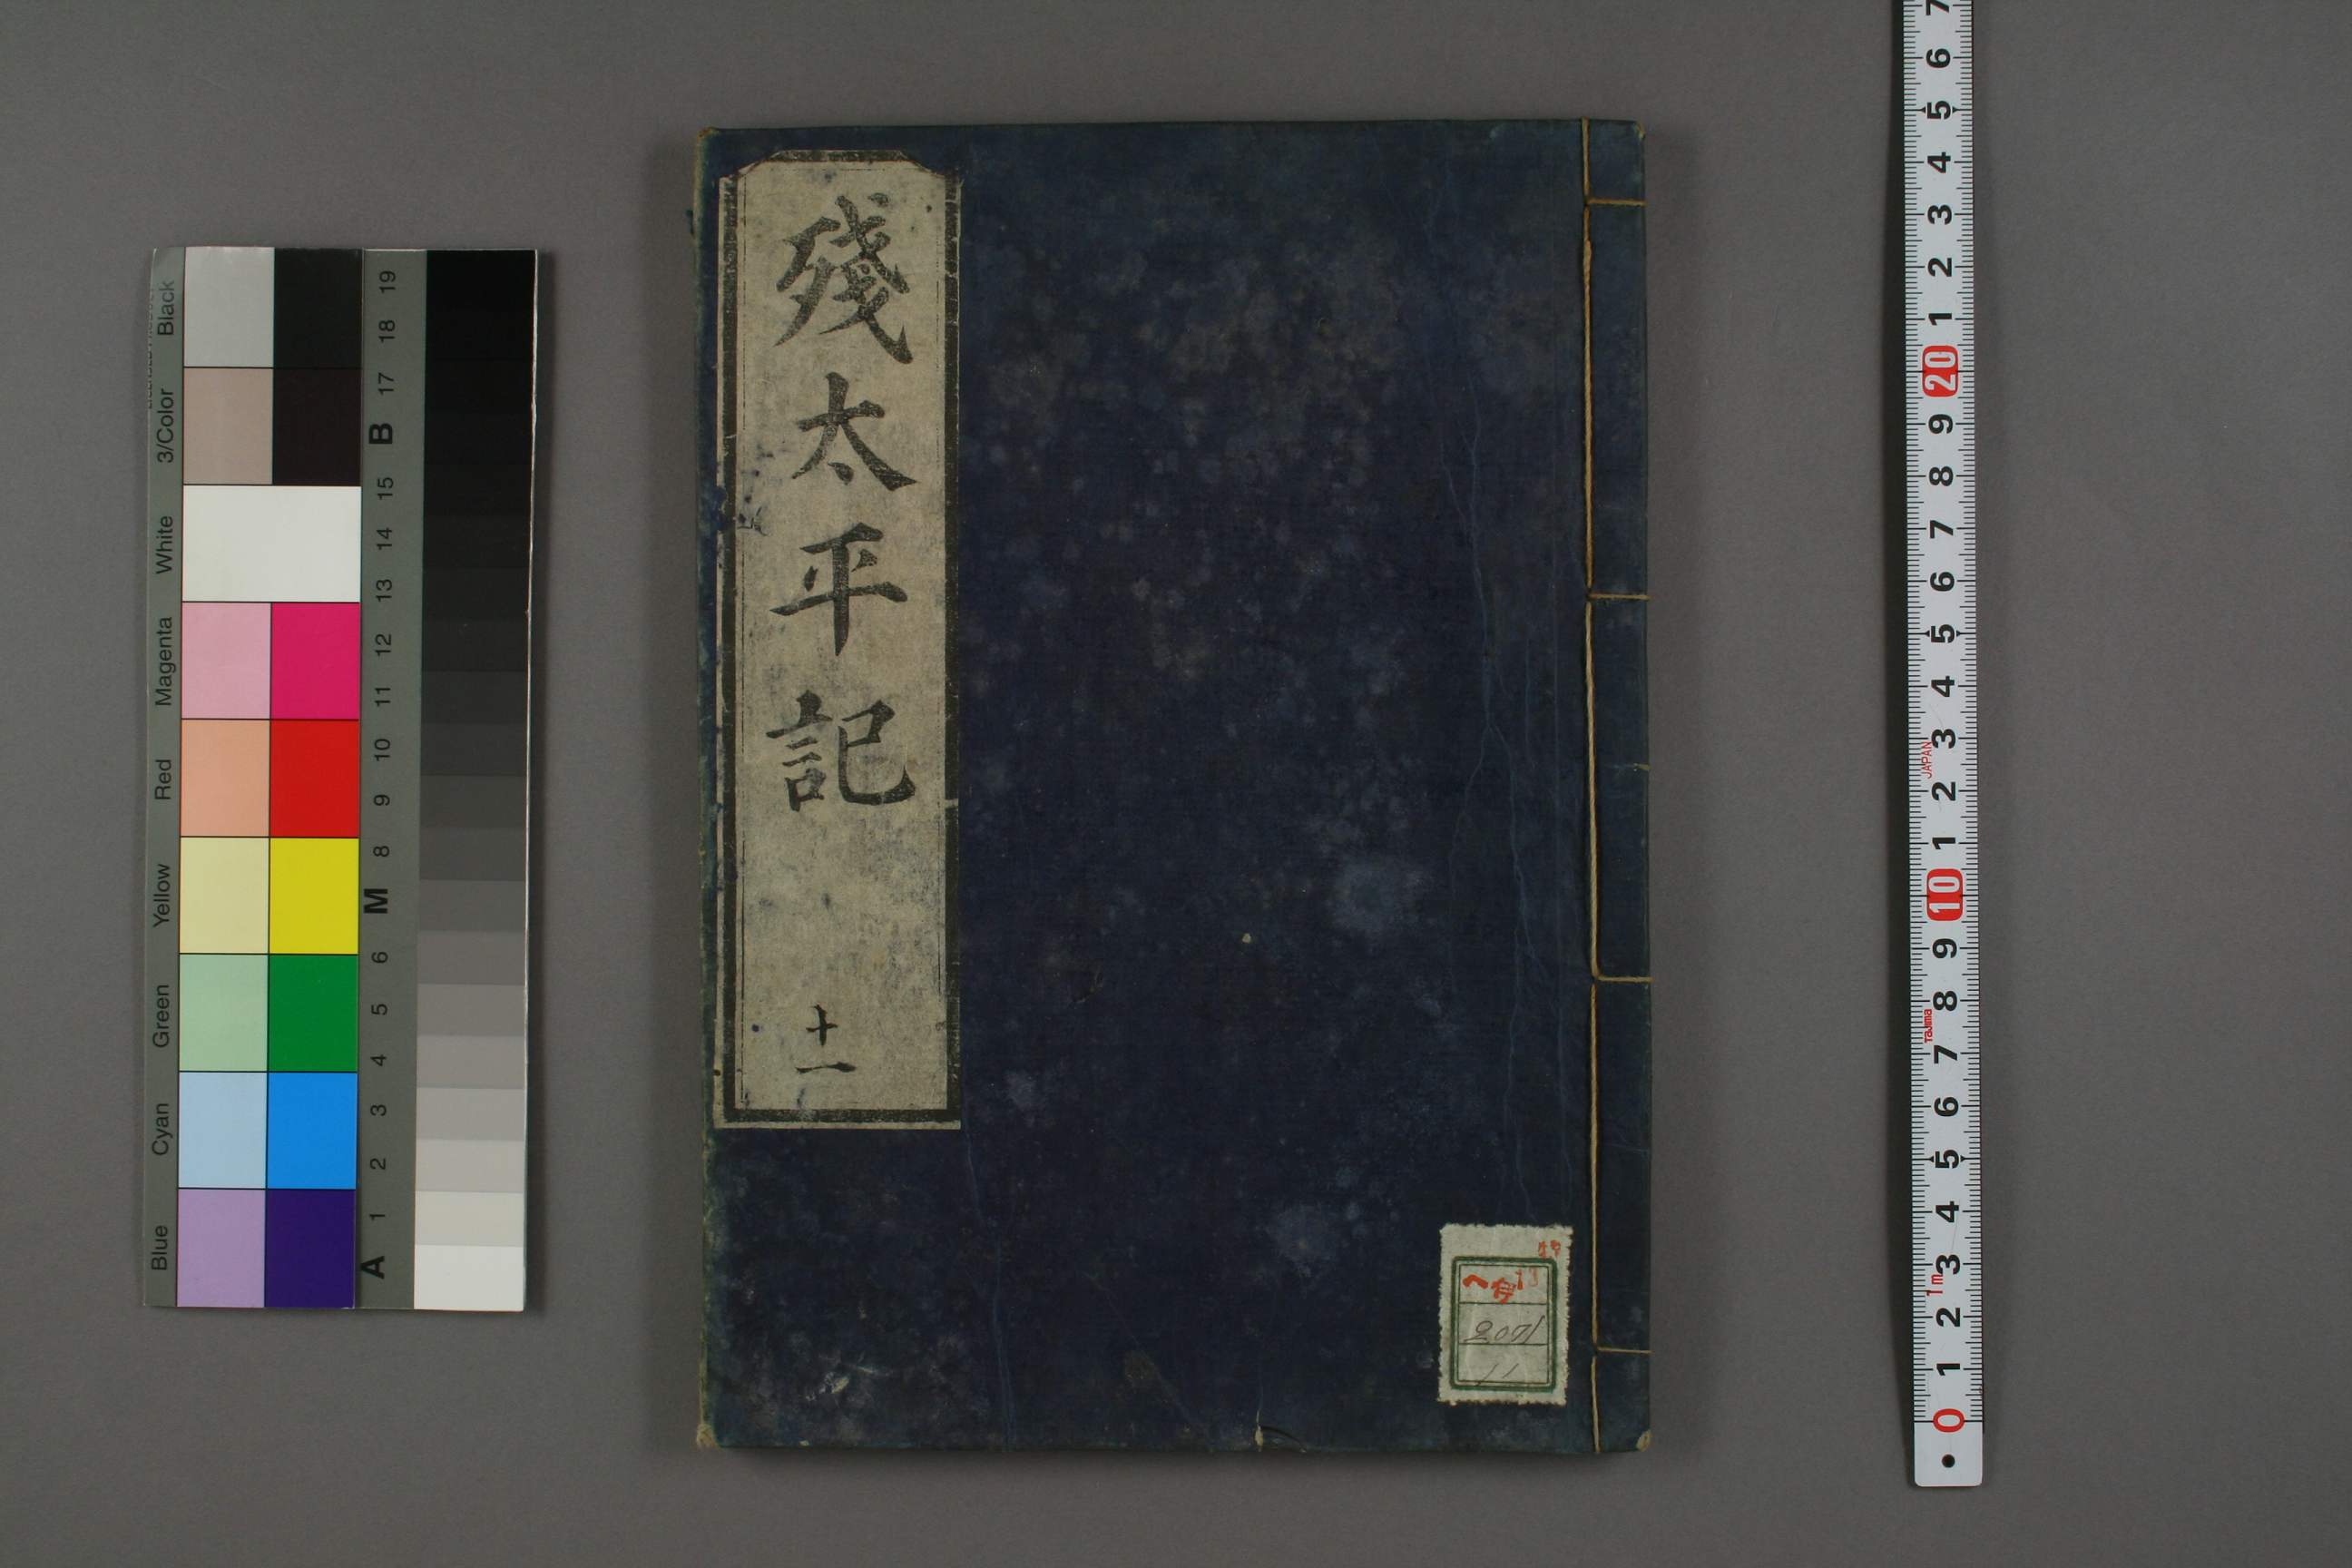 殘太平記
十一
特
ヘ 13
2071
11
Blue Cyan Green Yellow Red Magenta White 3/Color Black
A 1 2 3 4 5 6 M 8 9 10 11 12 13 14 15 B 17 18 19
7
6
5
4
3
2
1
20
9
8
7
6
5
4
3
JAPAN
2
1
10
9
8
Tajima
7
6
5
4
3
1m
2
1
0